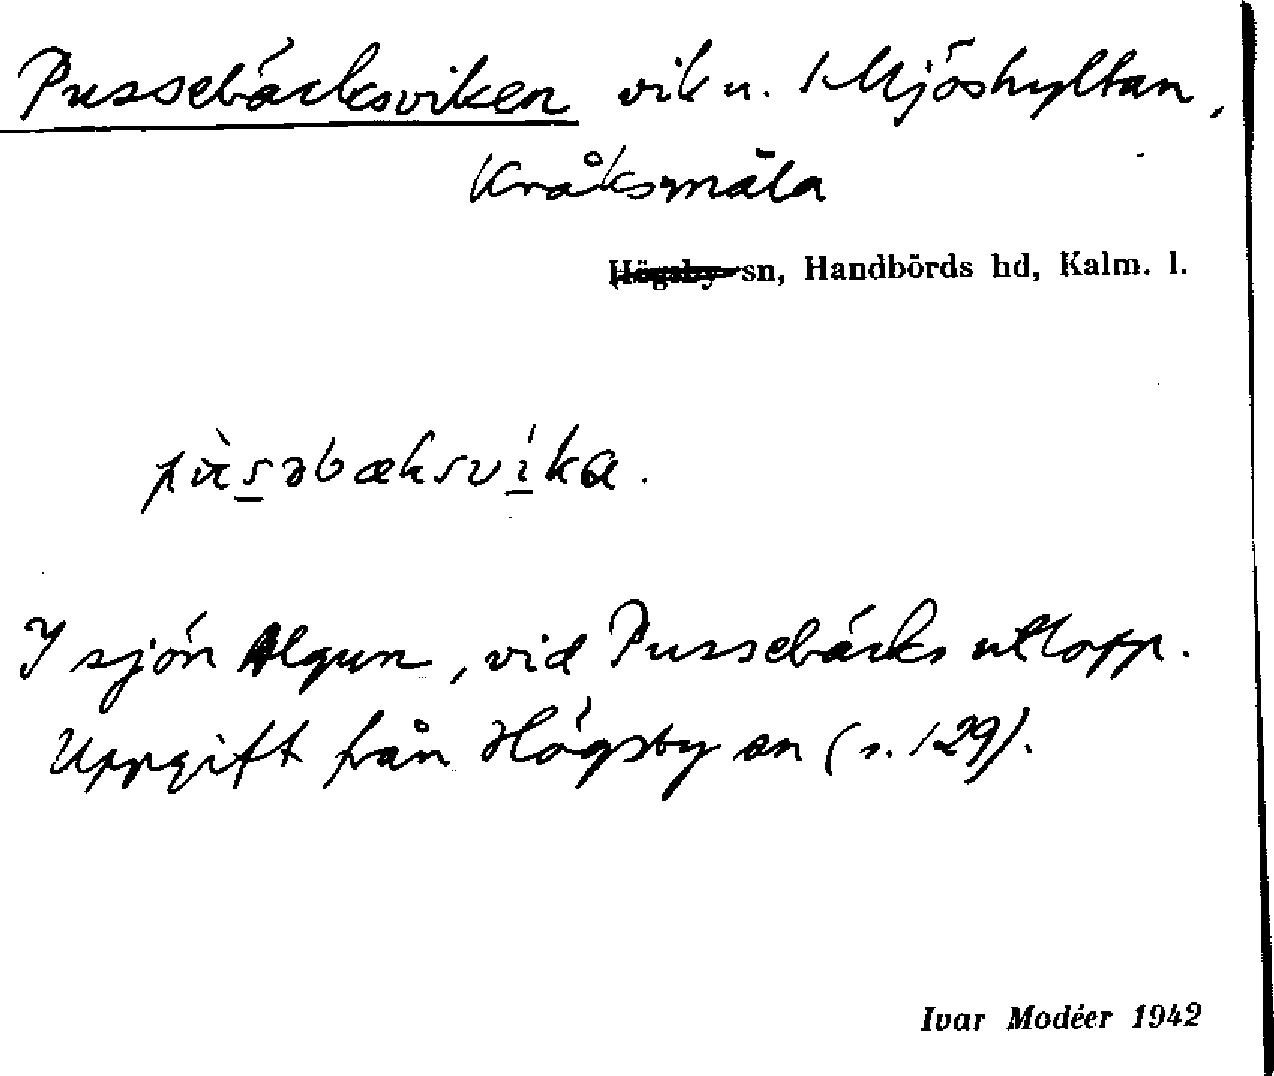 Pussebäcksviken vik u. 1 Mjöshyltan,
Kråksmåla
Högsby sn, Handbörds hd, Kalm. l.
pùsəbæksvíka.
I sjön Algun, vid Pussebäcks utlopp.
Uppgift från Högsby sn (s. 129).
Ivar Modéer 1942